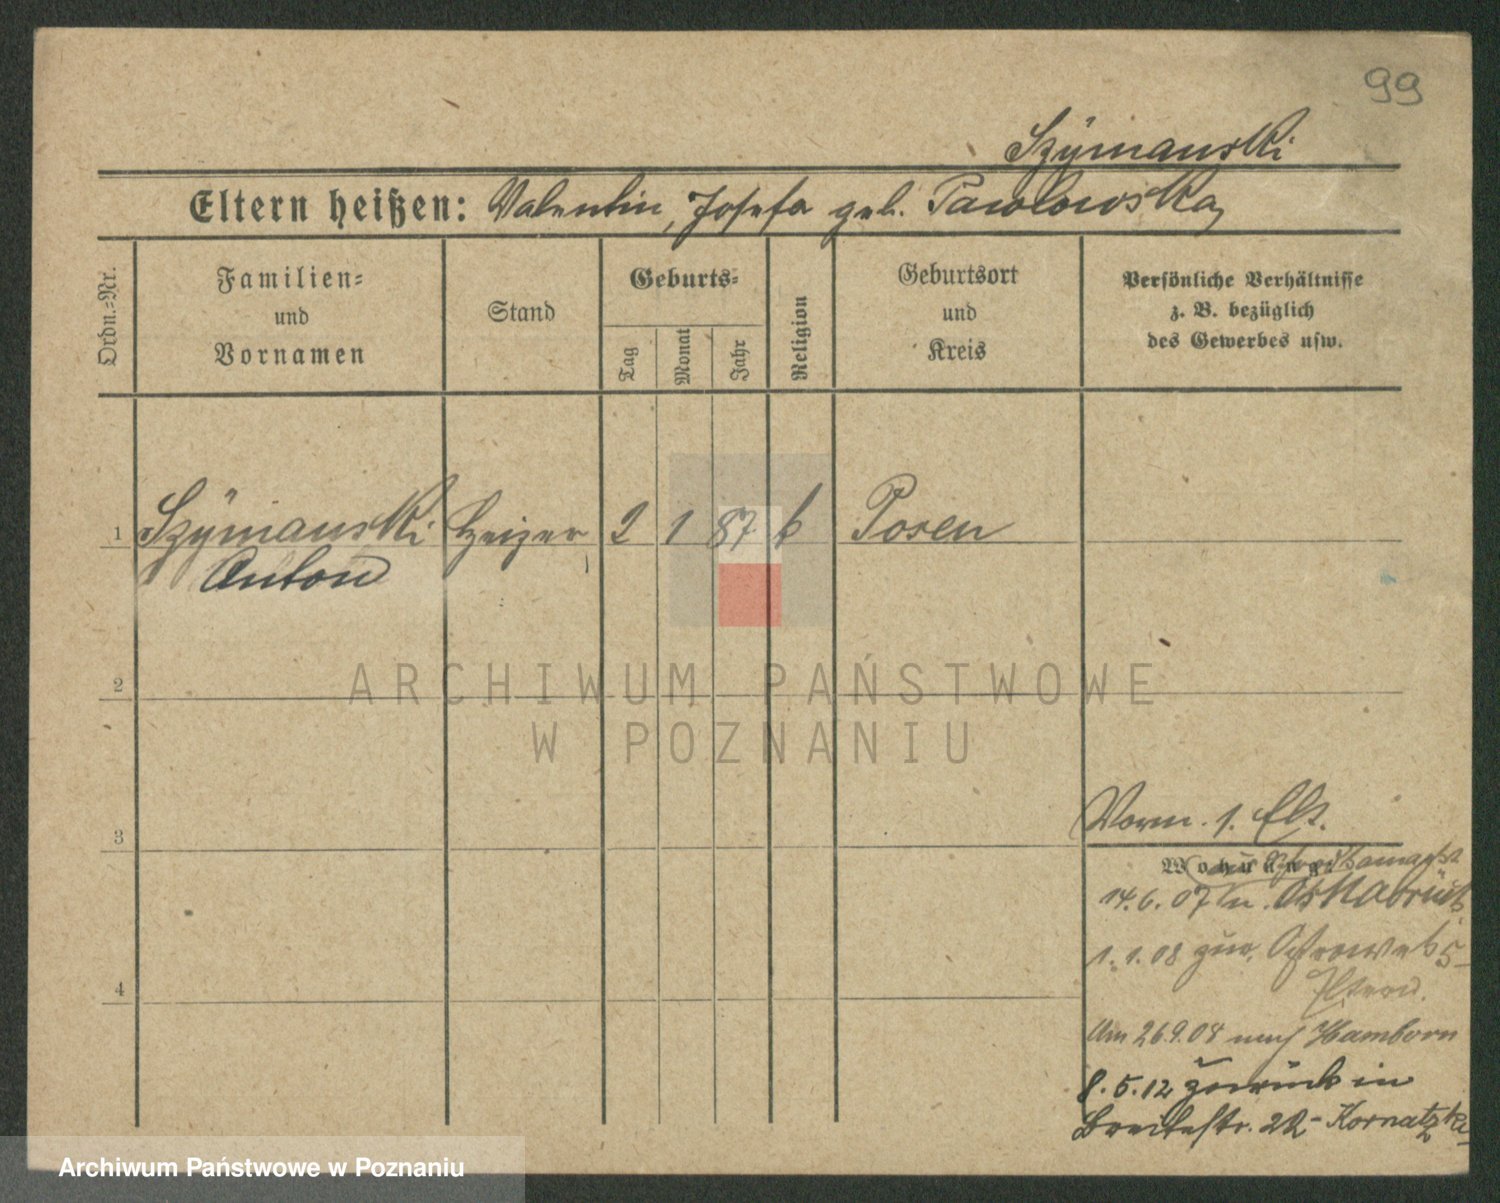 99
Szÿmanski
Eltern heißen: Valentin, Josefa geb. Pawlowska,
Ordn.-Nr.
Familien-
und
Vornamen
Stand
Geburts-
Tag
Monat
Jahr
Religion
Geburtsort
und
Kreis
Persönliche Verhältnisse
z. B. bezüglich
des Gewerbes usw.
1 Szÿmanski Heizer 2 1 87 k Posen
Anton
2
ARCHIWUM PAŃSTWOWE
W POZNANIU
3
4
Vorm. 1. Elt.
Wohnung
14.6.07 n. Osnabrück
1.1.08 zur. Ostrowek 5
Eltern.
Am 26.9.08 nach Hamborn
8.5.12 zurück in
Breitestr. 22 - Kornatzka
Archiwum Państwowe w Poznaniu